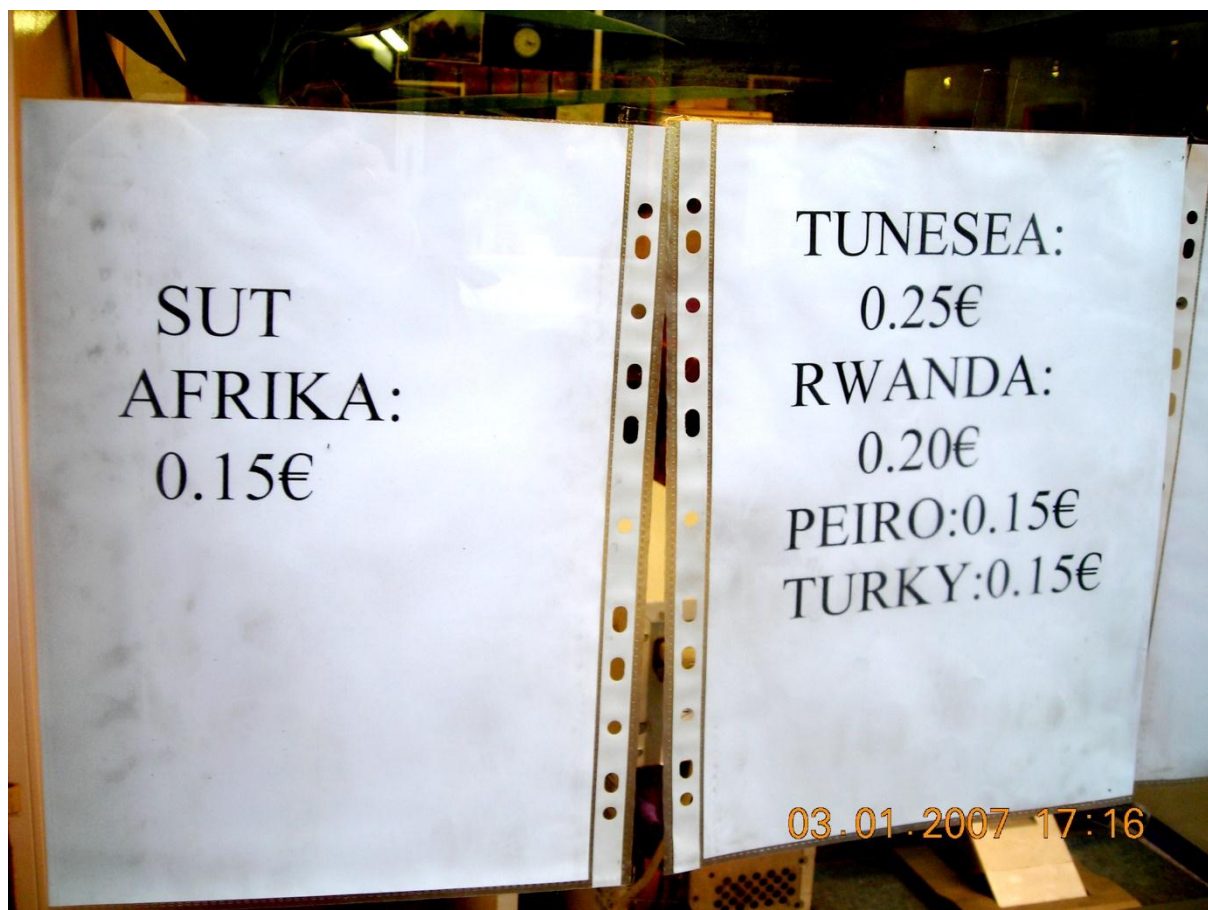 SUT
AFRIKA:
0.15€
TUNESEA:
0.25€
RWANDA:
0.20€
PEIRO:0.15€
TURKY:0.15€
03.01.2007 17:16